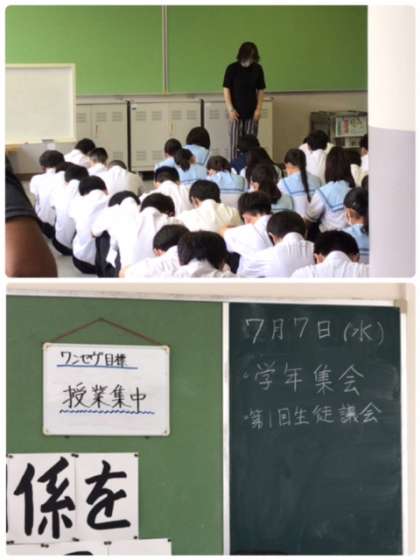 ワンセヴ目標
授業集中
係を
7月7日(水)
・学年集会
・第1回生徒議会